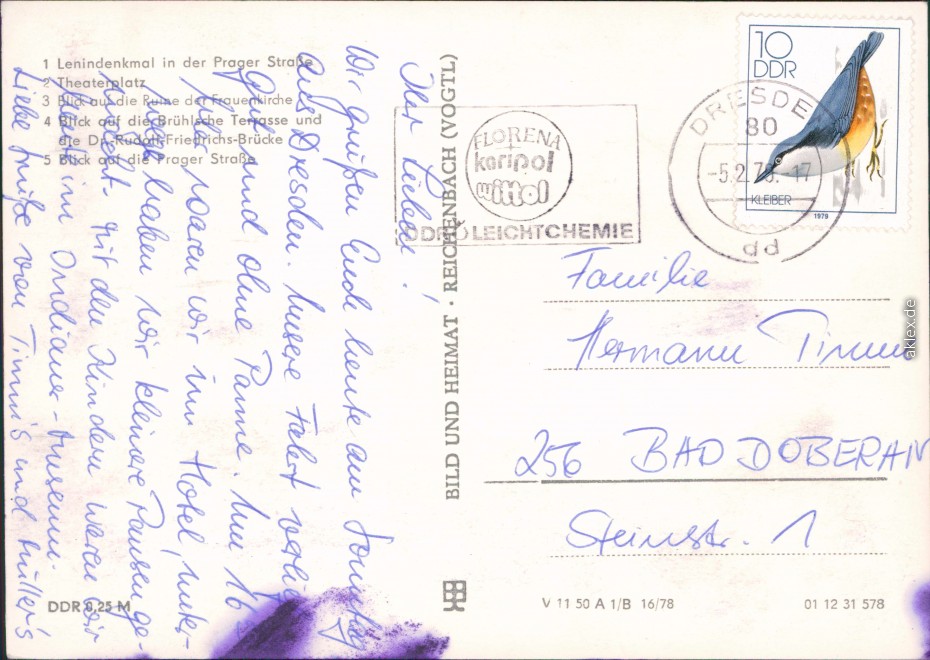 1 Lenindenkmal in der Prager Straße
2 Theaterplatz
3 Blick auf die Ruine der Frauenkirche
4 Blick auf die Brühlsche Terrasse und
die Dr.-Rudolf-Friedrichs-Brücke
5 Blick auf die Prager Straße
Ihr Lieben!
Wir grüßen Euch heute am Sonntag
aus Dresden. Unsere Fahrt verlief
gut und ohne Panne. Um 16
Uhr waren wir im Hotel, unter-
haben wir kleinere Pausen ge-
macht. Mit den Kindern waren wir
heute im Indianer-Museum.
Liebe Grüße von Timm's und Müller's
DDR 0,25 M
BILD UND HEIMAT · REICHENBACH (VOGTL)
FLORENA
karipol
wittol
DDR LEICHTCHEMIE
DRESDEN
80
-5.2.79.-17
dd
10
DDR
KLEIBER
1979
Familie
Hermann Timm
256 BAD DOBERAN
Steinstr. 1
V 11 50 A 1/B 16/78
01 12 31 578
aklex.de